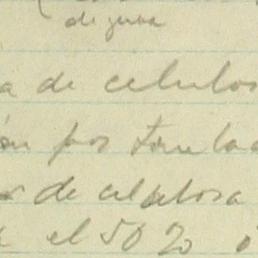 de
a de celulos
por tonelad
de celulosa
el 50%